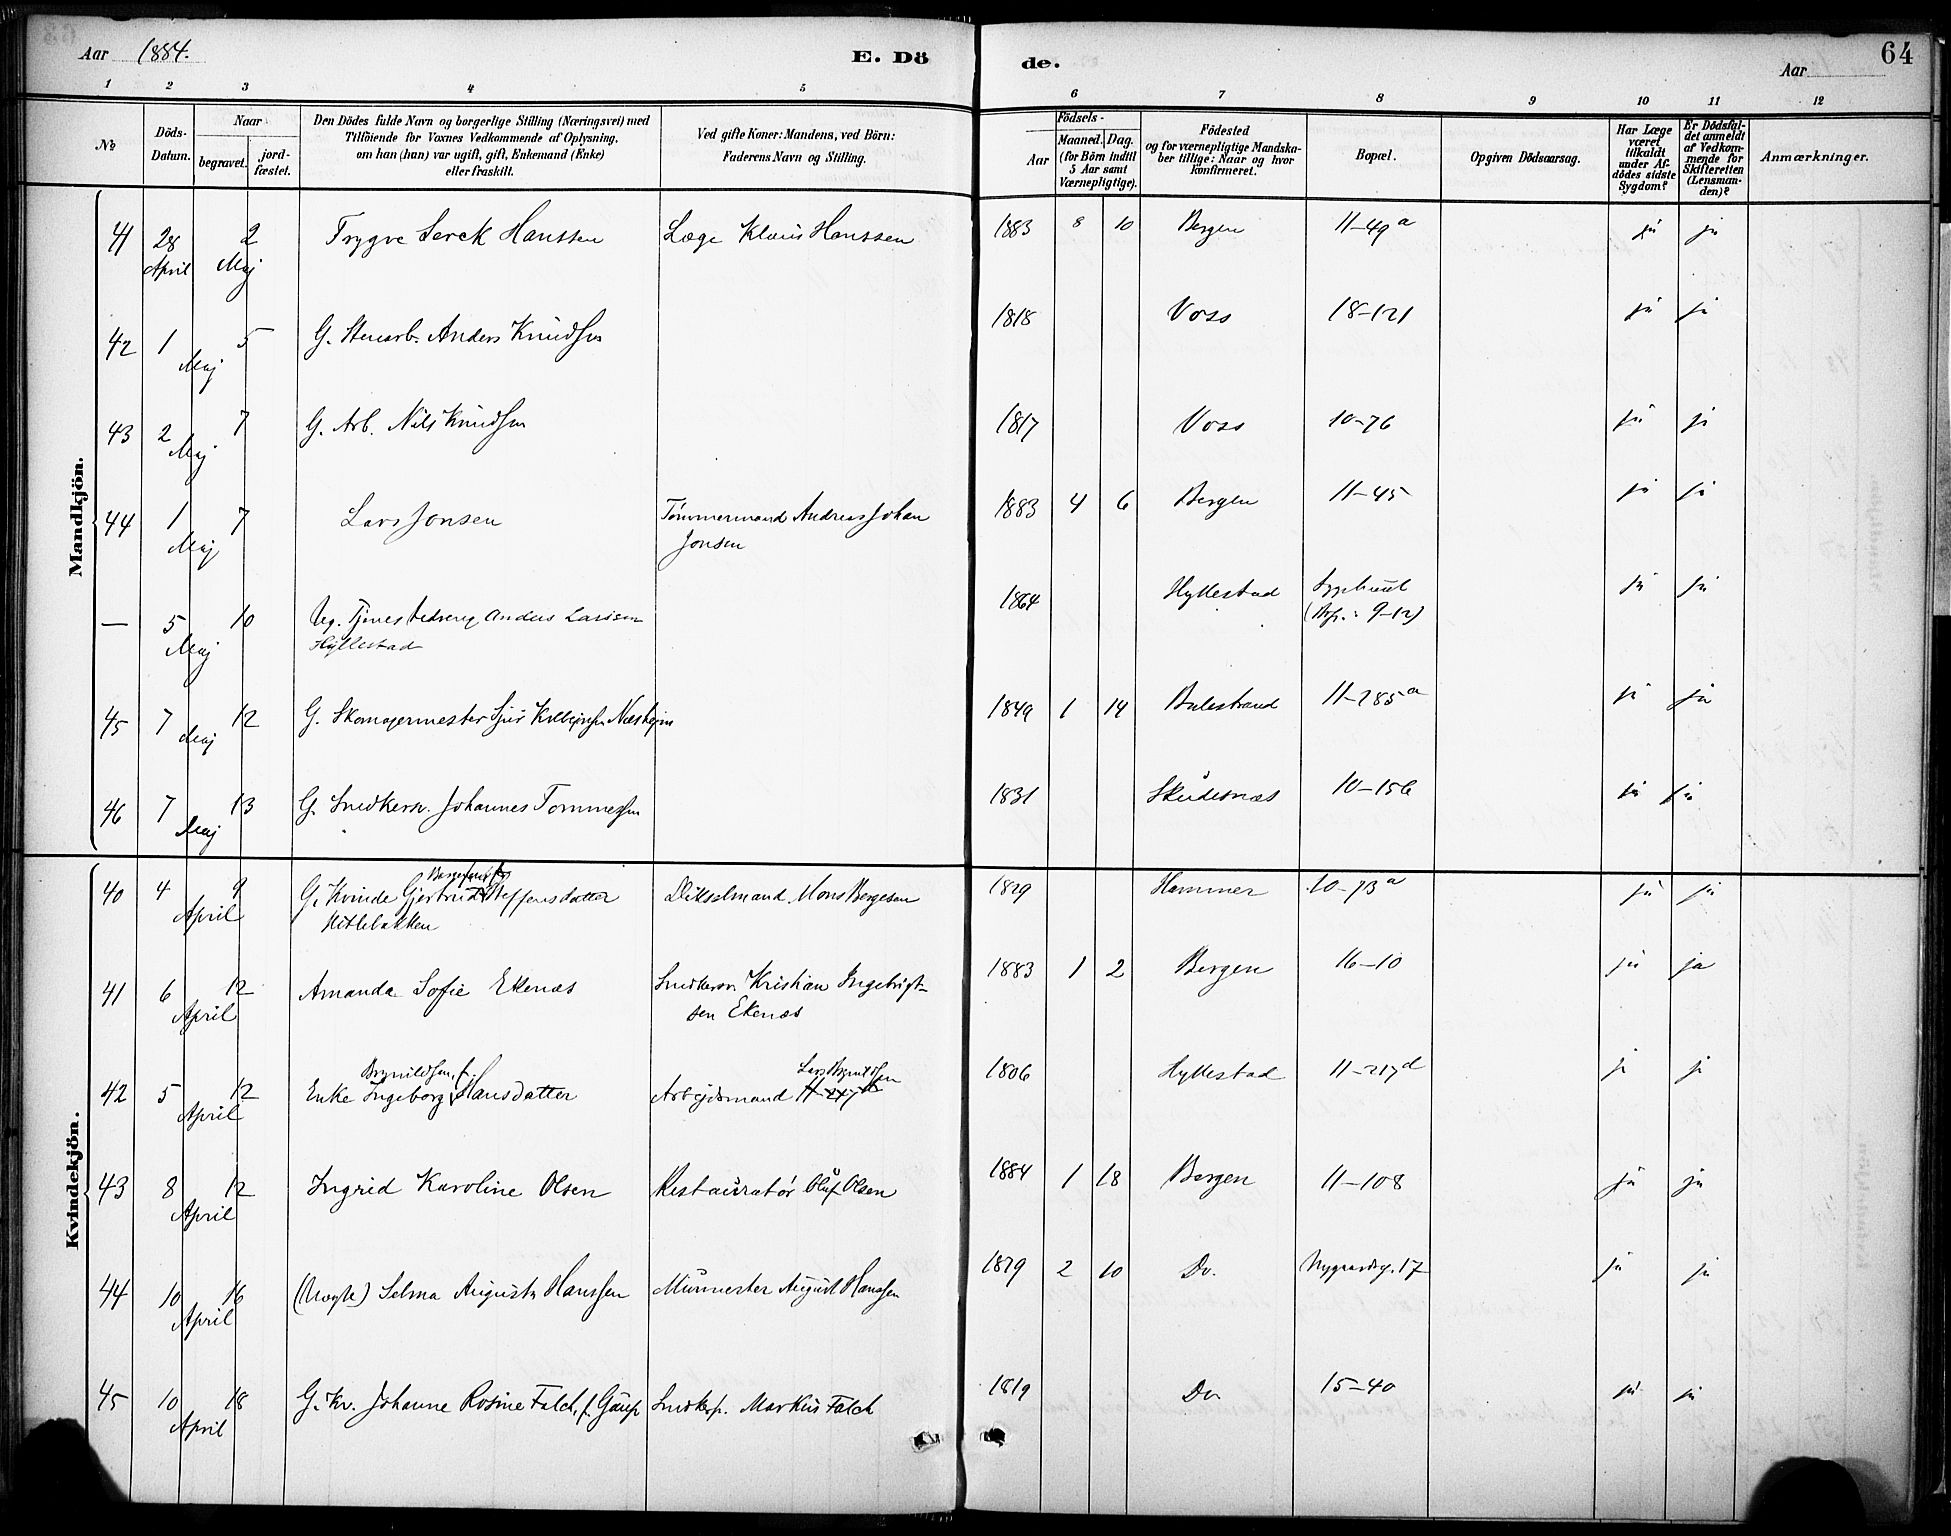 Aar 1884. E. Dö de. Aar 64
1 2 3 4 5 6 7 8 9 10 11 12
No
Döds-
Datum.
Naar
begravet.
jord-
fæstet.
Den Dödes fulde Navn og borgerlige Stilling (Næringsvei) med
Tilföiende for Voxnes Vedkommende af Oplysning,
om han (hun) var ugift, gift, Enkemand (Enke)
eller fraskilt.
Ved gifte Koner: Mandens, ved Börn:
Faderens Navn og Stilling.
Födsels-
Aar
Maaned. Dag.
(for Börn indtil
5 Aar samt
Værnepligtige).
Födested
og for værnepligtige Mandska-
ber tillige: Naar og hvor
konfirmeret.
Bopæl.
Opgiven Dödsaarsag.
Har Læge
været
tilkaldt
under Af-
dödes sidste
Sygdom?
Er Dödsfal-
det anmeldt
af Vedkom-
mende for
Skifteretten
(Lensman-
den)?
Anmærkninger.
Mandkjön.
41 28 2 Trygve Serck Hanssen Læge Klaus Hanssen 1883 8 10 Bergen 11-49a ja ja
April Maj
42 1 5 G. Stenarb. Anders Knudsen 1818 Voss 18-121 ja ja
Maj
43 2 7 G. Arb. Nils Knudsen 1817 Voss 10-76 ja ja
Maj
44 1 7 Lars Jonsen Tømmermand Andreas Johan 1883 4 6 Bergen 11-45 ja ja
Maj Jonsen
— 5 10 Ug. Tjenestedreng Anders Larssen 1864 Hyllestad Sygehuset ja ja
Maj Hyllestad 9-12)
45 7 12 G. Skomagermester Sjur Næshejm 1849 1 14 Balestrand 11-285a ja ja
Maj
46 7 13 G. Snedkersv. Johannes Tommessen 1831 Skudesnæs 10-156 ja ja
Maj
Kvindekjön.
40 4 9 G. Kvinde Gjertrud Steffensdatter Mons Bergesen 1829 Hammer 10-73a ja ja
April
41 6 12 Amanda Sofie Ekenæs Snedkersv. Kristian Ingebrigt- 1883 1 2 Bergen 16-10 ja ja
April sen Ekenæs
Brynildsen, f. Lars Brynildsen
42 5 12 Enke Ingeborg Hansdatter Arbejdsmand 1806 Hyllestad 11-217d ja ja
April
43 8 12 Ingrid Karoline Olsen Restauratør Oluf Olsen 1884 1 18 Bergen 11-108 ja ja
April
44 10 16 (Uægte) Selma Augusta Hanssen Murmester August Hanssen 1879 2 10 Do. Nygaardsg. 17 ja ja
April
45 10 18 G. Kv. Johanne Rosine Falch, f. Gaup Snedkersv. Markus Falch 1819 Do. 15-40 ja ja
April